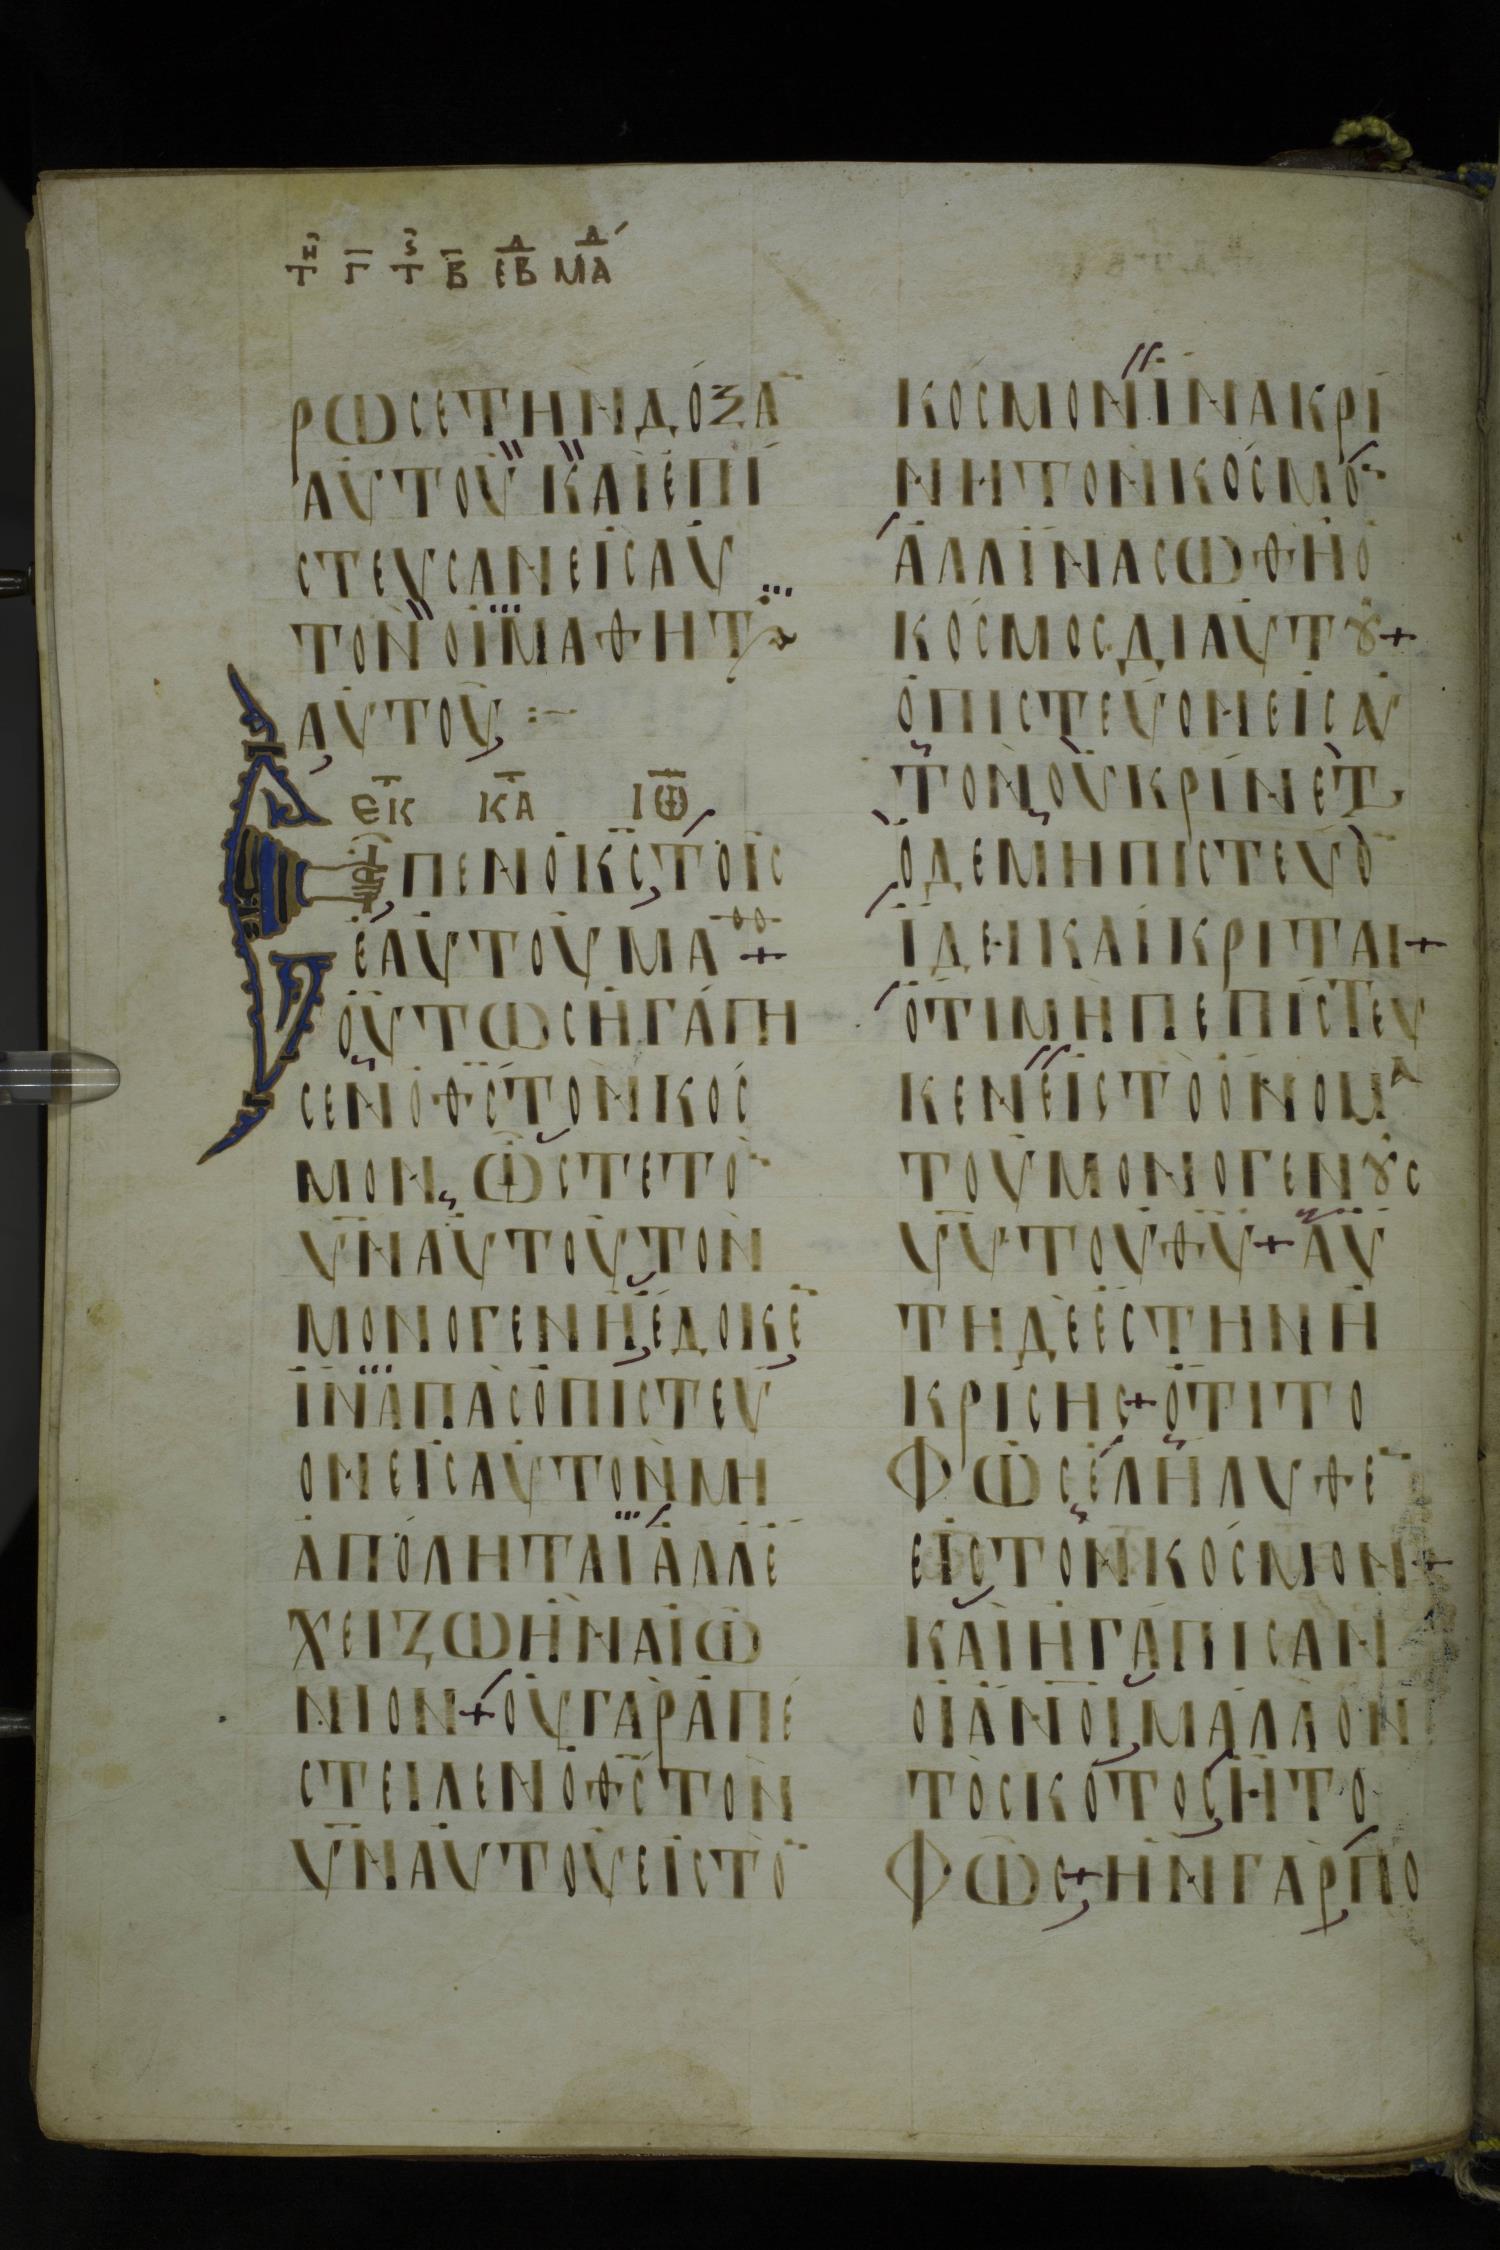 τῇ Γ̅ τς̑ Β̅ ΕΒΔ ΜΑ̅
ΡΩΣΕΤΗΝΔΟΞΑ̅
ΑΥΤΟΥ ΚΑΙΕΠΙ
ΣΤΕΥΣΑΝΕΙΣΑΥ
ΤΟΝ ΟΙΜΑΘΗΤΑΙ
ΑΥΤΟΥ :–
ΕΚ ΚΑ ΙΩ
ΕΙΠΕΝΟΚ̅Σ̅ΤΟΙΣ
ΕΑΥΤΟΥΜΑΘΘ +
ΟΥΤΩΣΗΓΑΠΗ
ΣΕΝΟΘ̅Σ̅ΤΟΝΚΟΣ
ΜΟΝ, ΩΣΤΕΤΟ̅
Υ̅Ν̅ΑΥΤΟΥΤΟΝ
ΜΟΝΟΓΕΝΗΕΔΟΚΕ̅
ΙΝΑΠΑΣΟΠΙΣΤΕΥ
ΟΝΕΙΣΑΥΤΟΝΜΗ
ΑΠΟΛΗΤΑΙΑΛΛΕ
ΧΕΙΖΩΗΝΑΙΩ
ΝΙΟΝ+ΟΥΓΑΡΑΠΕ
ΣΤΕΙΛΕΝΟΘ̅Σ̅ΤΟΝ
Υ̅Ν̅ΑΥΤΟΥΕΙΣΤΟ̅
ΚΟΣΜΟΝΙΝΑΚΡΙ
ΝΗΤΟΝΚΟΣΜΟ̅
ΑΛΛΙΝΑΣΩΘΗΟ
ΚΟΣΜΟΣΔΙΑΥΤȢ+
ΟΠΙΣΤΕΥΟΝΕΙΣΑΥ
ΤΟΝΟΥΚΡΙΝΕΤ
ΟΔΕΜΗΠΙΣΤΕΥΟ̅
ΙΔΕΝΚΑΙΚΡΙΤΑΙ+
ΟΤΙΜΗΠΕΠΙΣΤΕΥ
ΚΕΝΕΙΣΤΟΟΝΟΜΑ
ΤΟΥΜΟΝΟΓΕΝȢΣ
Υ̅Υ̅ΤΟΥΘ̅Υ̅+ΑΥ
ΤΗΔΕΕΣΤΗΝΗ
ΚΡΙΣΗΣ+ΟΤΙΤΟ
ΦΩΣΕΛΗΛΥΘΕ̅
ΕΙΣΤΟΝΚΟΣΜΟΝ+
ΚΑΙΗΓΑΠΙΣΑΝ
ΟΙΑ̅Ν̅Ο̅Ι̅ΜΑΛΛΟΝ
ΤΟΣΚΟΤΟΣΗΤΟ
ΦΩΣ+ΗΝΓΑΡΠΟ